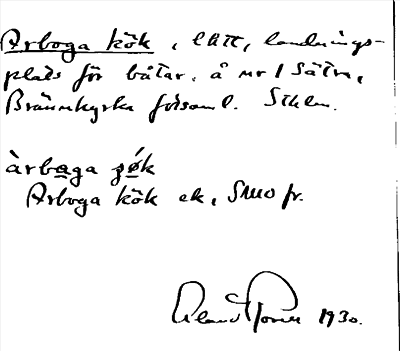 Arboga kök, lätt, landnings-
plats för båtar. å nr 1 Sätra,
Brännkyrka församl. Sthlm.
àrbaga ȼ́k
Arboga kök ek, SMO fr.
1930.